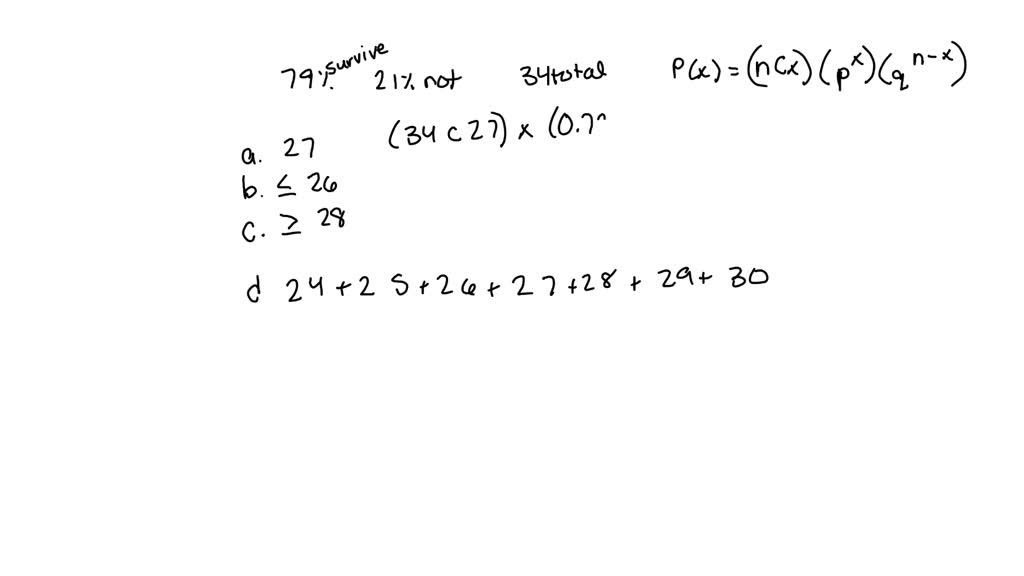 79% survive 21% not 34 total P(x) = (nCx)(p^x)(q^n-x)
a. 27 (34 C 27) × (0.7
b. ≤ 26
c. ≥ 28
d 24 + 25 + 26 + 27 + 28 + 29 + 30